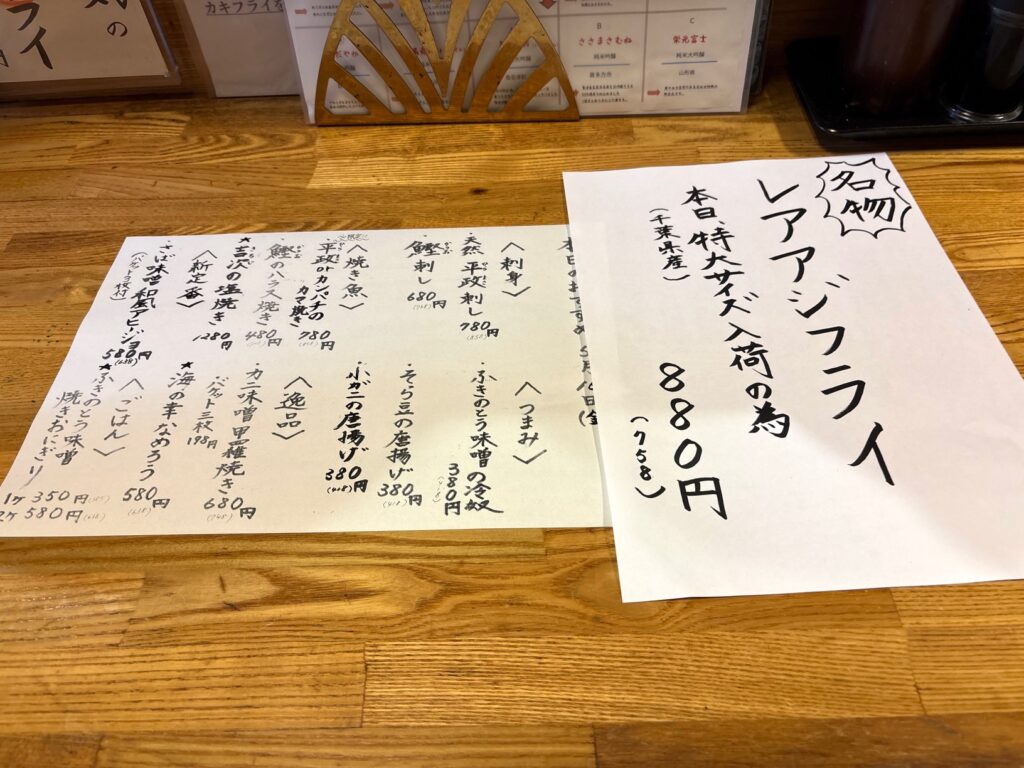 名物
レアアジフライ
本日、特大サイズ入荷の為
(千葉県産)
880円
本日のおすすめ 5月
〈刺身〉
・天然 平政刺し
780円
・鰹刺し
680円
〈焼き魚〉
・平政orカンパチの
カマ焼き
780円
・鰹のハラス焼き
480円
★吉次の塩焼き
1280円
〈新定番〉
・さば味噌和風アヒージョ
(バケット三枚付)
580円
(638)
〈つまみ〉
・ふきのとう味噌の冷奴
380円
・そら豆の唐揚げ
380円
(418)
・小ガニの唐揚げ
380円
(418)
〈逸品〉
・カニ味噌甲羅焼き
680円
(748)
バケット三枚
198円
★海の幸なめろう
580円
(638)
〈ごはん〉
★ふきのとう味噌
焼きおにぎり
1ケ 350円
2ケ 580円
カキフライを
B
ささまさむね
純米吟醸
喜多方市
C
栄光富士
純米大吟醸
山形県
の
フライ